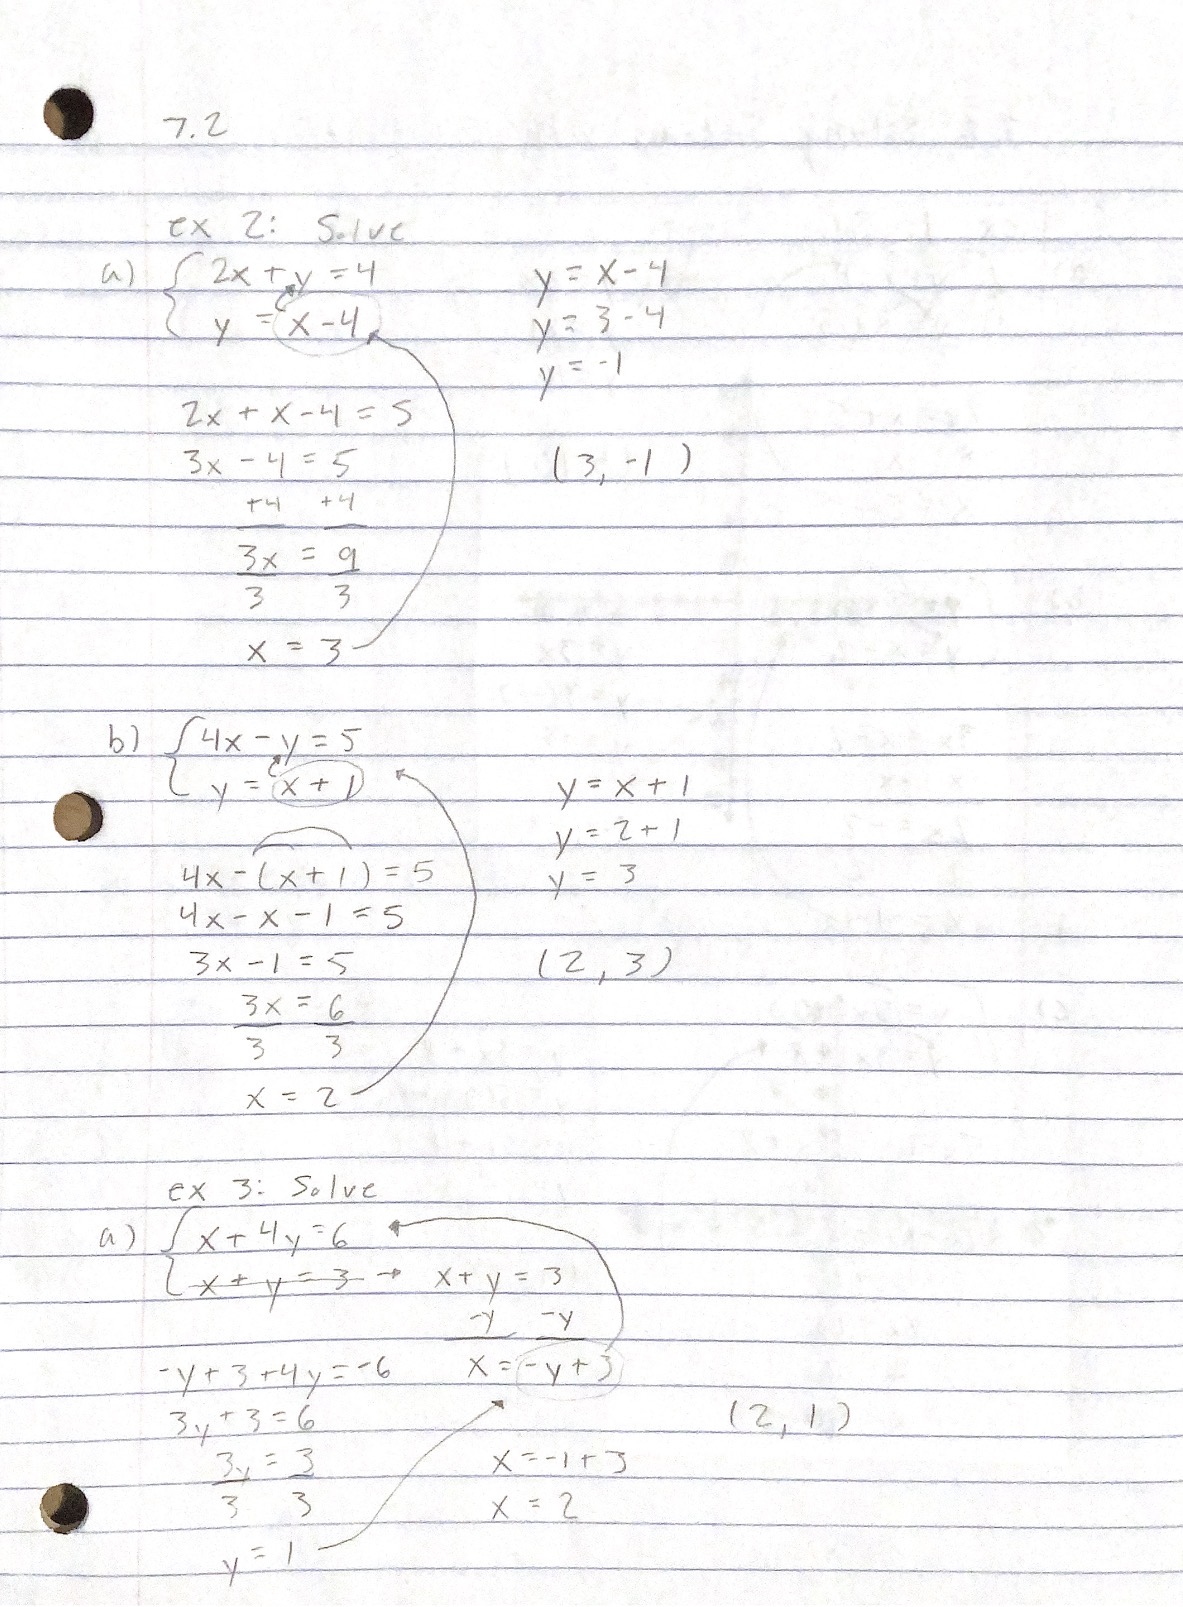 7.2
ex 2: Solve
a) { 2x + y = 4
y = x - 4
2x + x - 4 = 5
3x - 4 = 5
+4 +4
3x = 9
3 3
x = 3
y = x - 4
y = 3 - 4
y = -1
(3, -1)
b) { 4x - y = 5
y = x + 1
4x - (x + 1) = 5
4x - x - 1 = 5
3x - 1 = 5
3x = 6
3 3
x = 2
y = x + 1
y = 2 + 1
y = 3
(2, 3)
ex 3: Solve
a) { x + 4y = 6
x + y = 3 → x + y = 3
-y -y
x = -y + 3
-y + 3 + 4y = -6
3y + 3 = 6
3y = 3
3 3
y = 1
x = -1 + 3
x = 2
(2, 1)